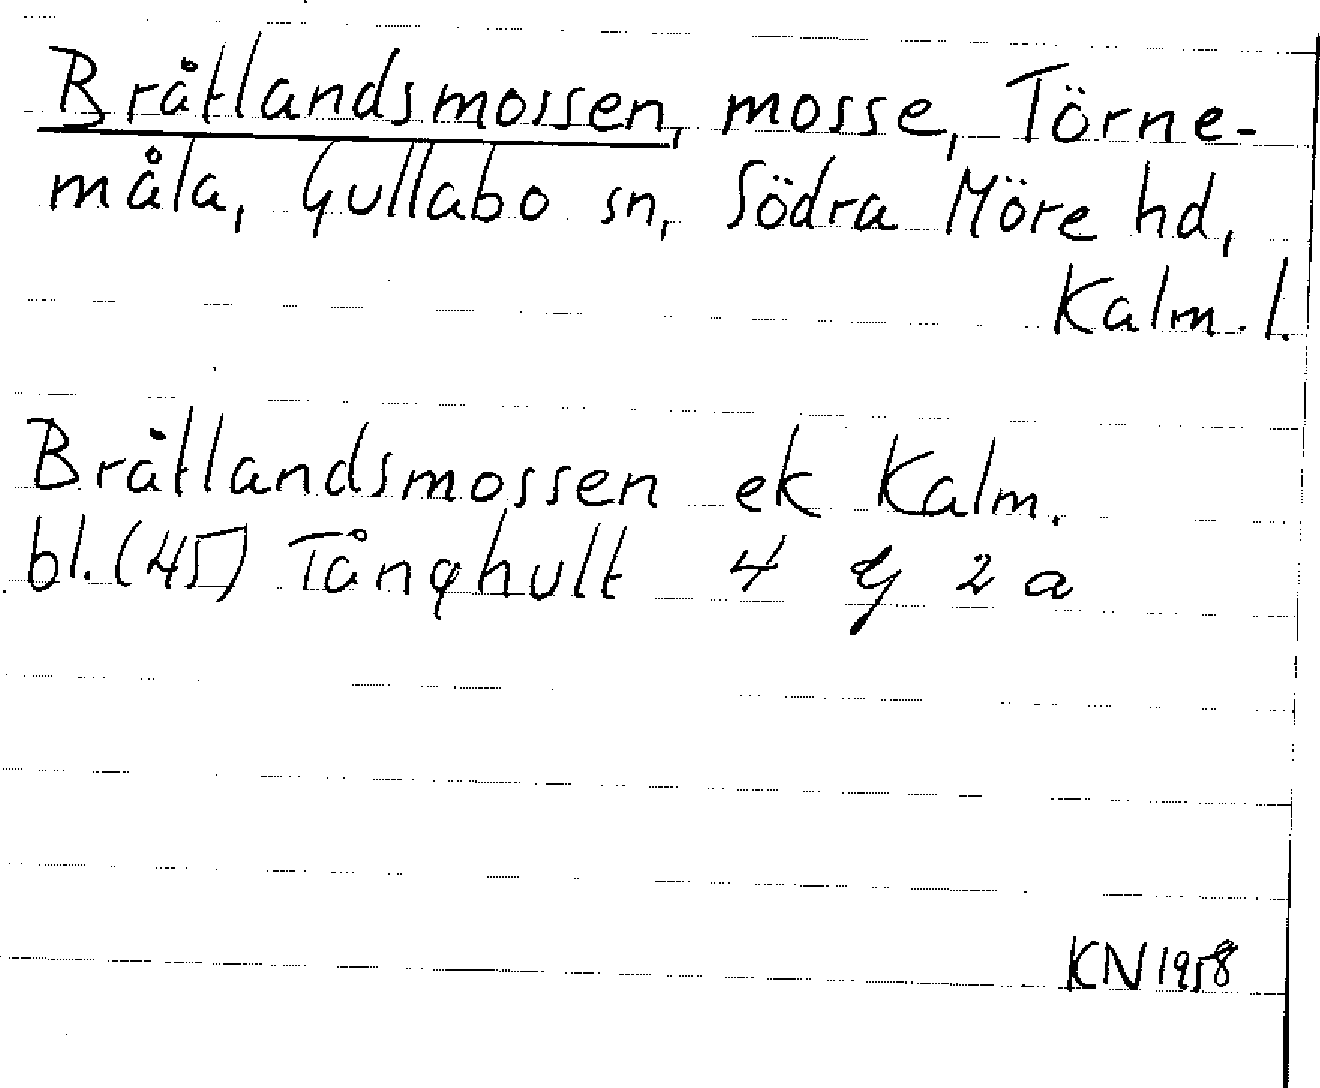 Bråtlandsmossen, mosse, Törne-
måla, Gullabo sn, Södra Möre hd,
Kalm. l.
Bråtlandsmossen ek Kalm.
bl. (45) Tånghult 4 G 2 a
KN 1958